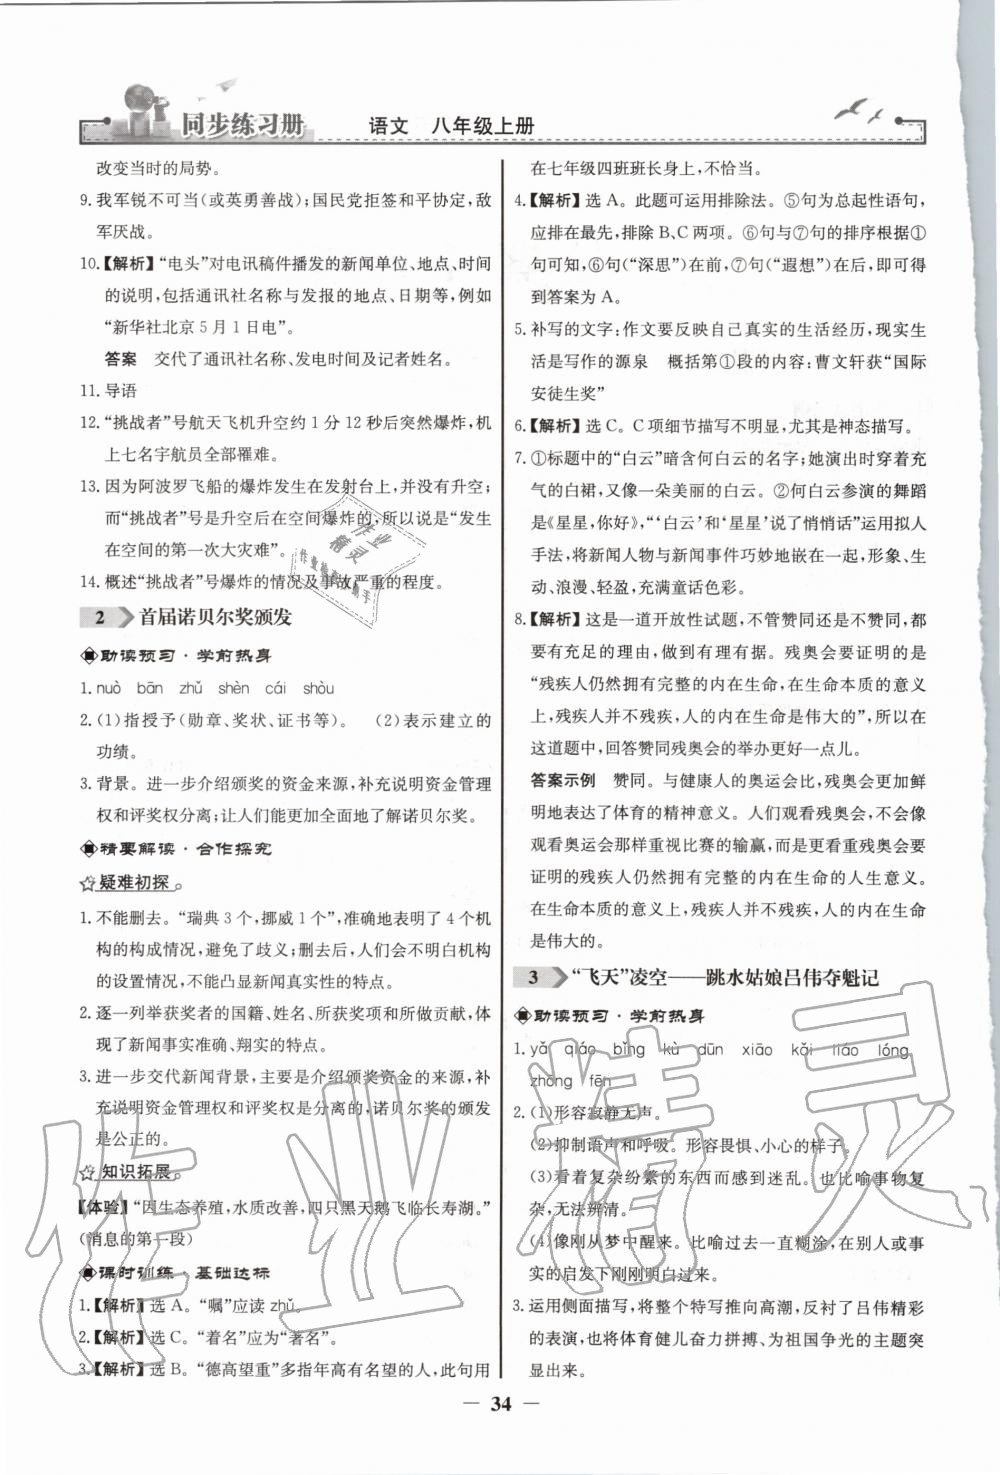 同步练习册 语文 八年级上册
改变当时的局势。
9. 我军锐不可当(或英勇善战);国民党拒签和平协定,敌
军厌战。
10.【解析】“电头”对电讯稿件播发的新闻单位、地点、时间
的说明,包括通讯社名称与发报的地点、日期等,例如
“新华社北京5月1日电”。
答案 交代了通讯社名称、发电时间及记者姓名。
11. 导语
12.“挑战者”号航天飞机升空约1分12秒后突然爆炸,机
上七名宇航员全部罹难。
13. 因为阿波罗飞船的爆炸发生在发射台上,并没有升空;
而“挑战者”号是升空后在空间爆炸的,所以说是“发生
在空间的第一次大灾难”。
14. 概述“挑战者”号爆炸的情况及事故严重的程度。
2 首届诺贝尔奖颁发
助读预习·学前热身
1. nuò bān zhǔ shèn cái shòu
2. (1)指授予(勋章、奖状、证书等)。 (2)表示建立的
功绩。
3. 背景。进一步介绍颁奖的资金来源,补充说明资金管理
权和评奖权分离;让人们能更加全面地了解诺贝尔奖。
精要解读·合作探究
疑难初探
1. 不能删去。“瑞典3个,挪威1个”,准确地表明了4个机
构的构成情况,避免了歧义;删去后,人们会不明白机构
的设置情况,不能凸显新闻真实性的特点。
2. 逐一列举获奖者的国籍、姓名、所获奖项和所做贡献,体
现了新闻事实准确、翔实的特点。
3. 进一步交代新闻背景,主要是介绍颁奖资金的来源,补
充说明资金管理权和评奖权是分离的,诺贝尔奖的颁发
是公正的。
知识拓展
【体验】“因生态养殖,水质改善,四只黑天鹅飞临长寿湖。”
(消息的第一段)
课时训练·基础达标
1.【解析】选A。“嘱”应读zhǔ。
2.【解析】选C。“着名”应为“著名”。
3.【解析】选B。“德高望重”多指年高有名望的人,此句用
在七年级四班班长身上,不恰当。
4.【解析】选A。此题可运用排除法。⑤句为总起性语句,
应排在最先,排除B、C两项。⑥句与⑦句的排序根据①
句可知,⑥句(“深思”)在前,⑦句(“遐想”)在后,即可得
到答案为A。
5. 补写的文字:作文要反映自己真实的生活经历,现实生
活是写作的源泉 概括第①段的内容:曹文轩获“国际
安徒生奖”
6.【解析】选C。C项细节描写不明显,尤其是神态描写。
7. ①标题中的“白云”暗含何白云的名字;她演出时穿着充
气的白裙,又像一朵美丽的白云。②何白云参演的舞蹈
是《星星,你好》,“‘白云’和‘星星’说了悄悄话”运用拟人
手法,将新闻人物与新闻事件巧妙地嵌在一起,形象、生
动、浪漫、轻盈,充满童话色彩。
8.【解析】这是一道开放性试题,不管赞同还是不赞同,都
要有充足的理由,做到有理有据。残奥会要证明的是
“残疾人仍然拥有完整的内在生命,在生命本质的意义
上,残疾人并不残疾,人的内在生命是伟大的”,所以在
这道题中,回答赞同残奥会的举办更好一点儿。
答案示例 赞同。与健康人的奥运会比,残奥会更加鲜
明地表达了体育的精神意义。人们观看残奥会,不会像
观看奥运会那样重视比赛的输赢,而更看重残奥会要
证明的残疾人仍然拥有完整的内在生命的人生意义。
在生命本质的意义上,残疾人并不残疾,人的内在生命
是伟大的。
3 “飞天”凌空——跳水姑娘吕伟夺魁记
助读预习·学前热身
1. yǎ qiáo bǐng kù dūn xiāo kǎi liáo lóng
zhòng fēn
2. (1)形容寂静无声。
(2)抑制语声和呼吸。形容畏惧、小心的样子。
(3)看着复杂纷繁的东西而感到迷乱。也比喻事物复
杂,无法辨清。
(4)像刚从梦中醒来。比喻过去一直糊涂,在别人或事
实的启发下刚刚明白过来。
3. 运用侧面描写,将整个特写推向高潮,反衬了吕伟精彩
的表演,也将体育健儿奋力拼搏、为祖国争光的主题突
显出来。
— 34 —
作业精灵